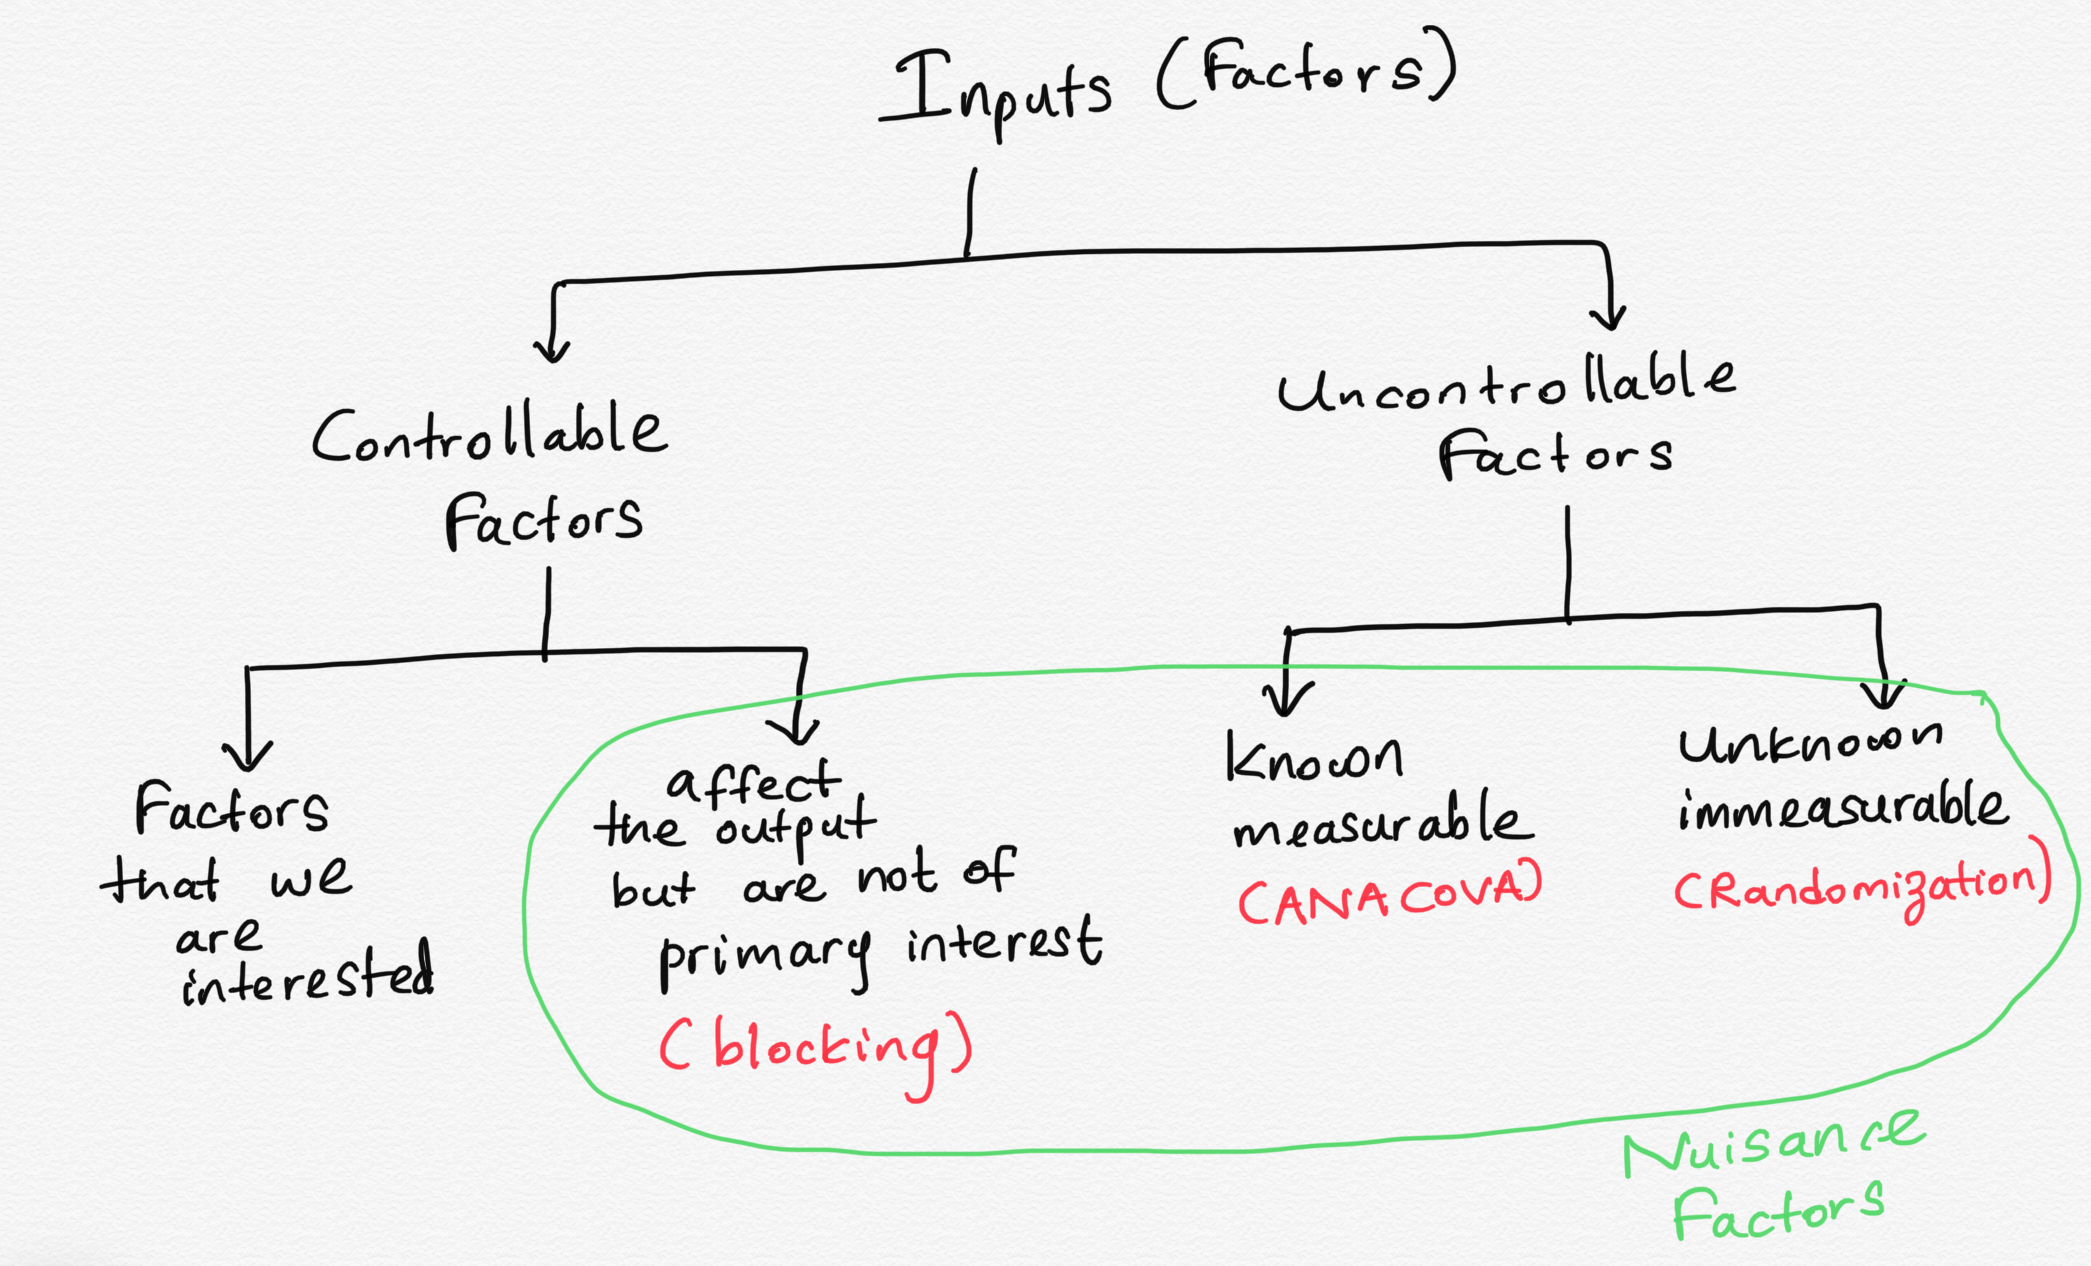 Inputs (Factors)
Controllable
Factors
Uncontrollable
Factors
Factors
that we
are
interested
affect
the output
but are not of
primary interest
(blocking)
Known
measurable
(ANACOVA)
Unknown
immeasurable
(Randomization)
Nuisance
Factors